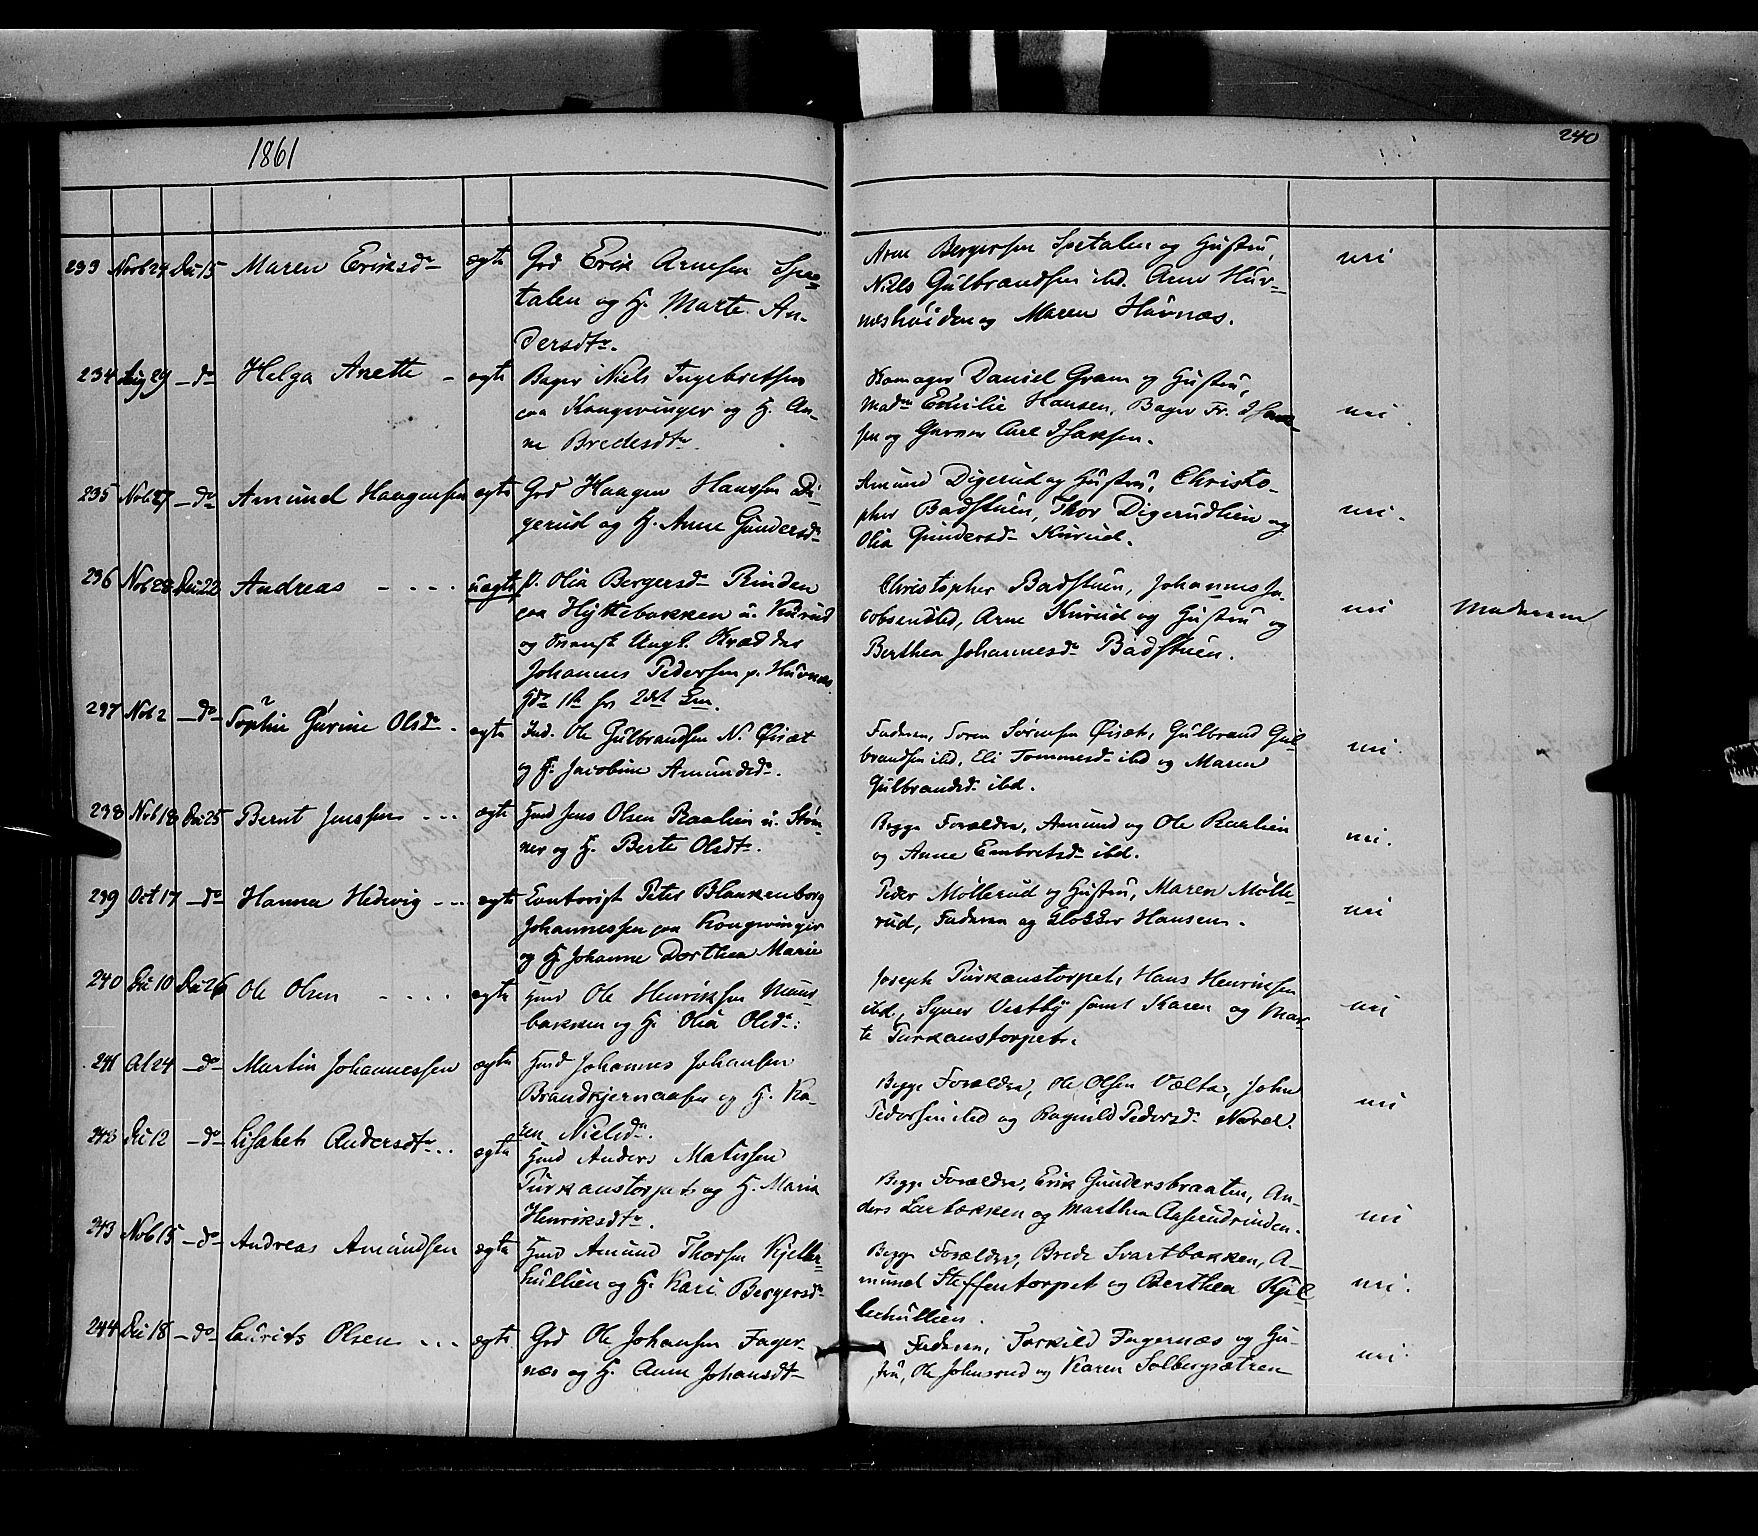 1861
240
233 Novb 24 Dec 15 Maren Eriksdr ægte Grd Erik Arnesen Spe-
talen og H. Marte An-
dersdtr.
Arne Bergersen Spetalen og Hustru,
Niels Gulbrandsen ibd. Arne Huv-
neshøiden og Maren Huvnæs.
nei
234 Aug 29 - do Helga Anette - ægte Bager Niels Ingebretsen
paa Kongsvinger og H. An-
ne Bredesdtr
Daniel Gram og Hustru,
Madm Emilie Hansen, Bager Fr. Isak-
sen og Garver Carl Isaksen.
nei
235 Novb 27 - do Amund Haagensen ægte Grd Haagen Hanssen Di-
gerud og H. Anne Gundersdr
Amund Digerud og Hustru, Christo-
pher Badstuen, Thor Digerudlien og
Olia Gundersdr Kurud.
nei.
236 Novb 28 Dec 22 Andreas - - - - uægte P. Olia Bergersdr Rinden
paa Hyttebakken u. Kurud
og Svensk Ungk. Skrædder
Johannes Pedersen p. Huvnæs
1st for 2det
Christopher Badstuen, Johannes Ja-
cobsen ibd, Arne Kurud og Hustru og
Berthea Johannesdr Badstuen.
nei
Moderen
237 Nob 2 - do Sophie Gurine Olsdr. ægte Ind. Ole Gulbrandsen N. Øisæt
og H. Jacobine Amundsdr.
Faderen, Soren Sørensen Øisæt, Gulbrand Gul-
brandsen ibd, Eli Tommesdr ibd og Maren
Gulbrandsdr ibd.
nei.
238 Nvb 18 Dec 25 Bernt Jenssen - - - ægte Hmd Jens Olsen Raalien u. Støm-
ner og H. Berte Olsdtr.
Begge Forældre, Amund og Ole Raalien
og Anne Embretsdr ibd.
nei.
239 Oct 17 - do Hanna Hedevig - - - ægte Contorist Peter Blankenborg
Johannessen paa Kongsvinger
og H Johanne Dorthea Marie
Peder Møllerud og Hustru, Maren Mølle-
rud, Faderen og Klokker Hansen.
nei
240 Dec 10 Dec 26 Ole Olsen - - - - ægte Hmd Ole Henriksen Maur-
bakken og H. Olia Olsdr:
Joseph Purkanstorpet, Hans Henriksen
ibd, Syver Vestby samt Karen og Mar-
te Purkanstorpet.
nei
241 Oct 24 - do Martin Johannessen ægte Hmd Johannes Johansen
Brandkjernaasen og H. Ka-
ren Nielsdr.
Begge Forældre, Ole Olsen Vælta, John
Pedersen ibd og Ragnild Pedersdr Norel.
nei
243 Dec 12 - do Lisabeth Andersdtr... ægte Hmd Anders Matissen
Purkanstorpet og H. Maria
Henriksdtr.
Begge Forældre, Erik Gundersbraaten, An-
ders Larbakken og Marthea Aaserudrinden.
nei
243 Nvb 15 - do Andreas Amundsen ægte Hmd Amund Thorsen Kjeller-
hullien og H. Kari Bergersdr
Begge Forældre, Brede Svartbakken, A-
mund Steffentorpet og Berthea Kjel-
lerhullien.
nei.
244 Dec 18 - do Laurits Olsen - - - ægte Grd Ole Johansen Fager-
næs og H. Anne Johansdtr
Faderen, Torkild Fagernæs og Hu-
stru, Ole Johnsrud og Karen Solbergsætren
nei.